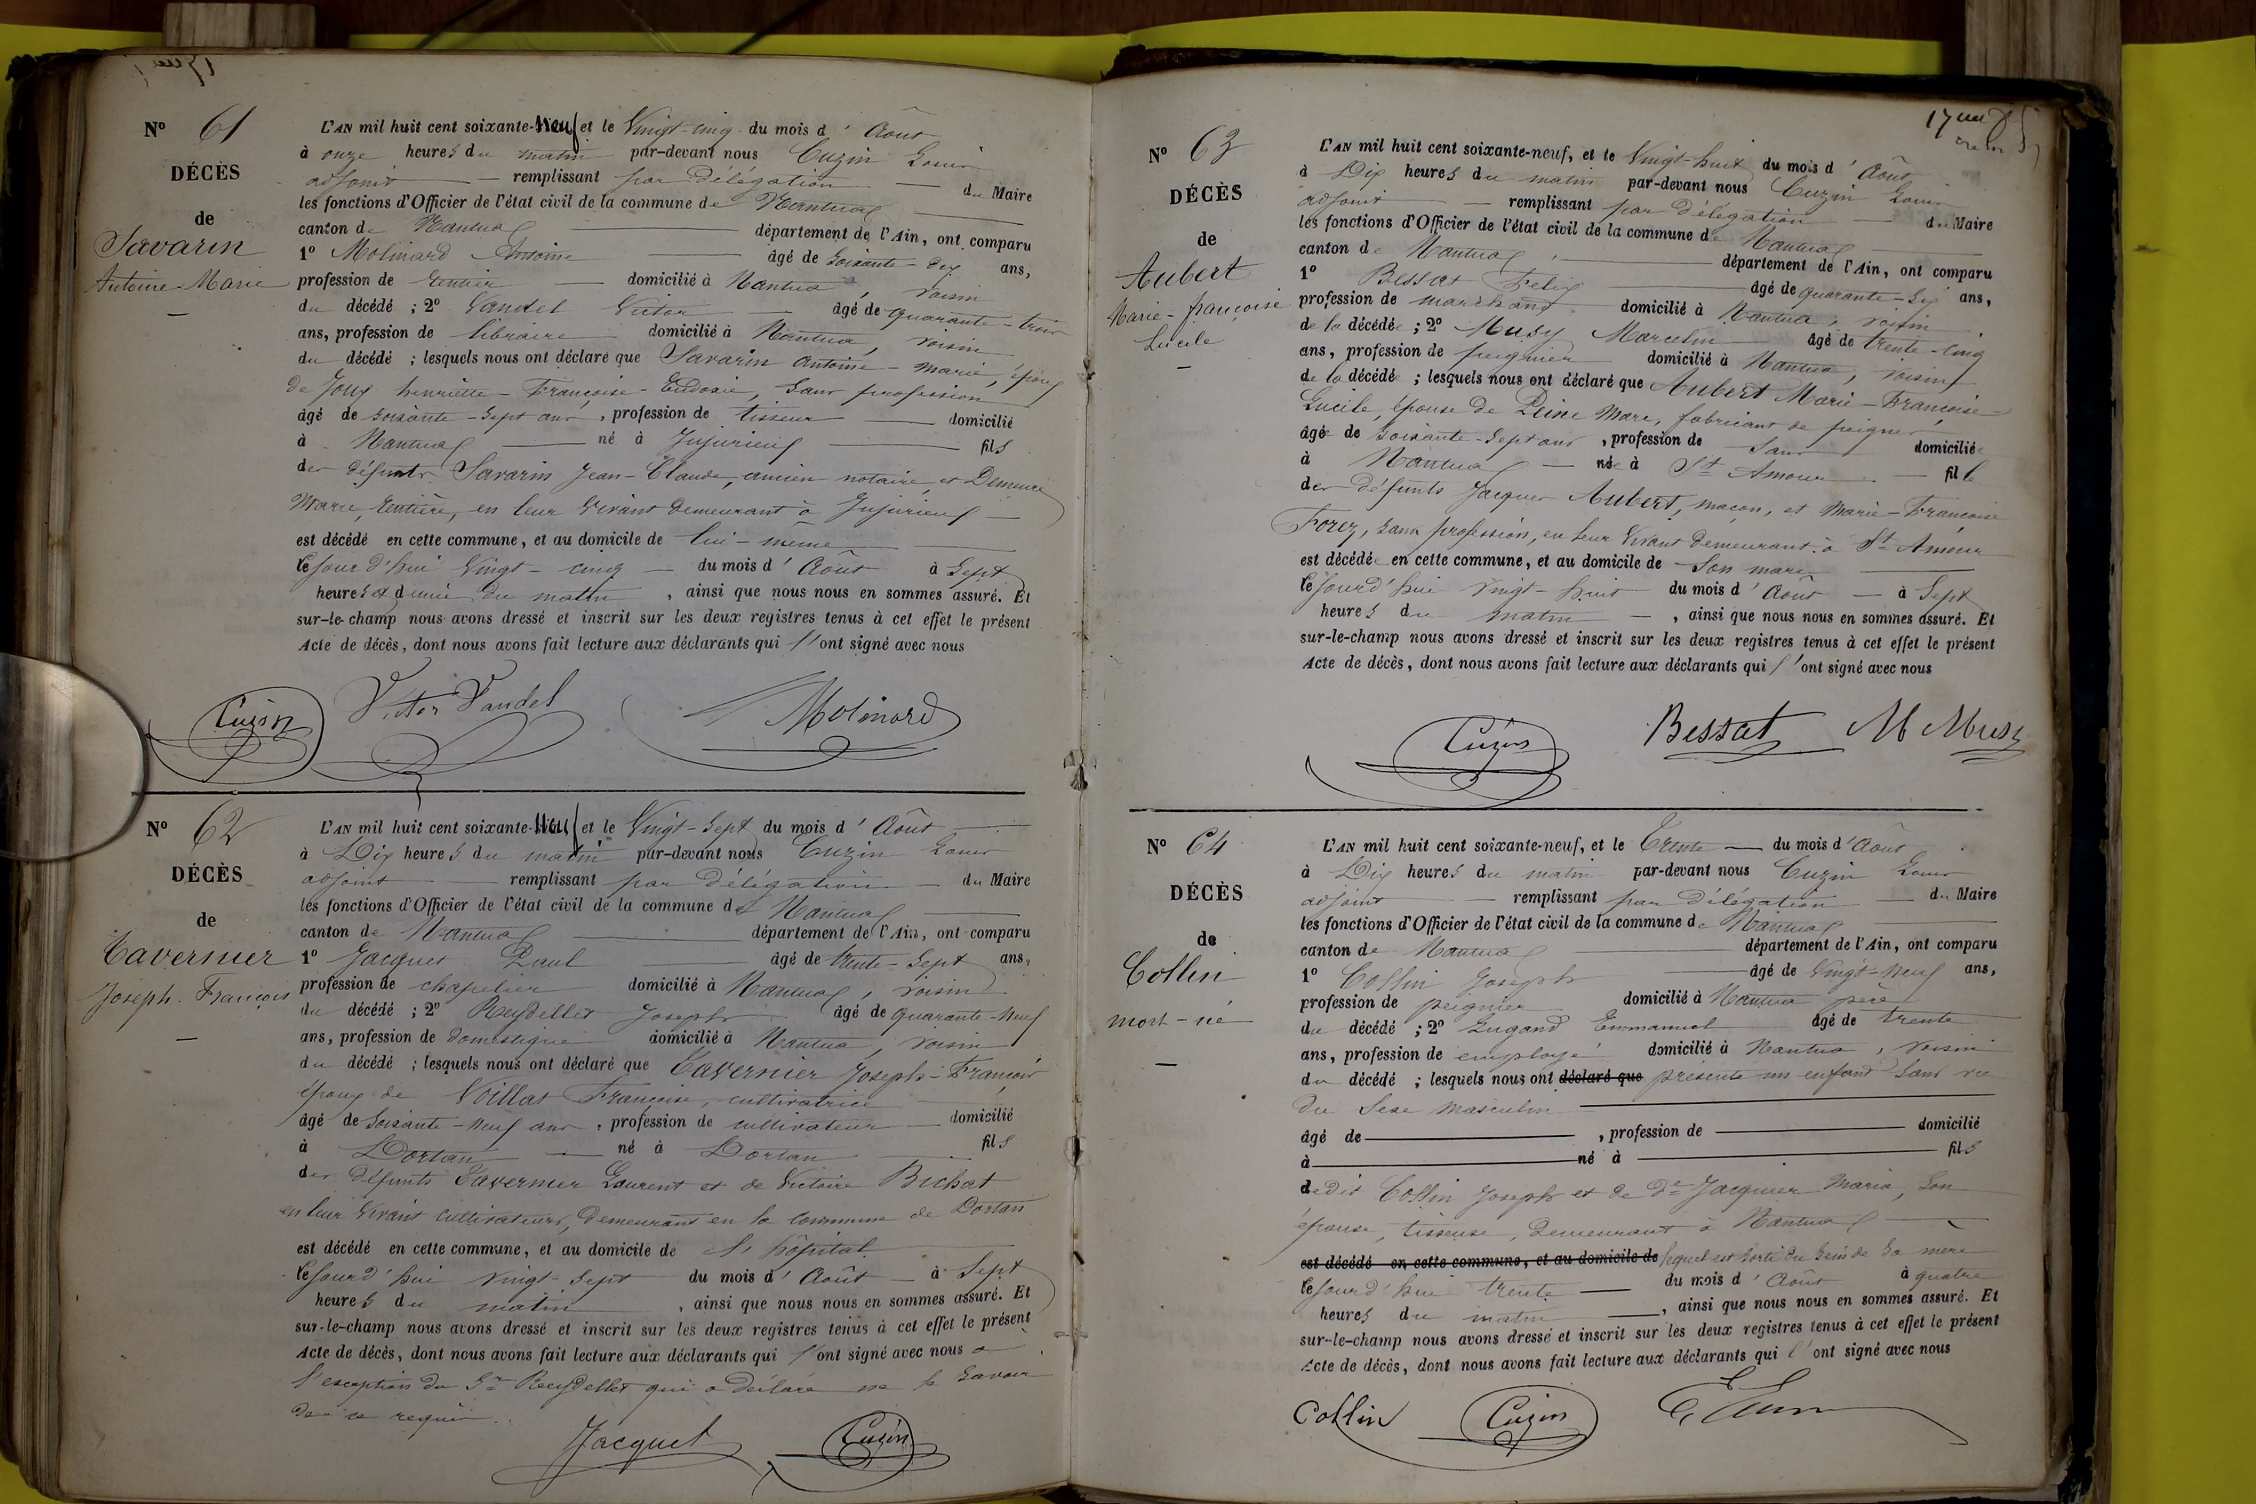 N° 61
DÉCÈS
de
Savarin
Antoine-Marie
L'AN mil huit cent soixante-neuf et le Vingt-cinq du mois d'Août
à onze heures du matin par-devant nous Cuzin Louis
adjoint remplissant par délégation du Maire
les fonctions d'Officier de l'état civil de la commune de Nantua
canton de Nantua département de l'Ain, ont comparu
1° Molinard Antoine âgé de soixante-dix ans,
profession de rentier domicilié à Nantua, voisin
du décédé ; 2° Vandel Victor âgé de quarante-trois
ans, profession de libraire domicilié à Nantua, voisin
du décédé ; lesquels nous ont déclaré que Savarin Antoine-Marie, époux
de Joux henriette-Françoise-Eudoxie, sans profession
âgé de soixante-sept ans, profession de tisseur domicilié
à Nantua né à Jujurieux fils
des défunts Savarin Jean-Claude, ancien notaire, et
Marie, rentière, en leur vivant demeurant à Jujurieux
est décédé en cette commune, et au domicile de lui-même
le jourd'hui vingt-cinq du mois d'Août à Sept
heures et demie du matin, ainsi que nous nous en sommes assuré. Et
sur-le-champ nous avons dressé et inscrit sur les deux registres tenus à cet effet le présent
Acte de décès, dont nous avons fait lecture aux déclarants qui l'ont signé avec nous
Cuzin Victor Vandel Molinard
N° 62
DÉCÈS
de
Tavernier
Joseph-François
L'AN mil huit cent soixante-neuf et le Vingt-Sept du mois d'Août
à Dix heures du matin par-devant nous Cuzin Louis
adjoint remplissant par délégation du Maire
les fonctions d'Officier de l'état civil de la commune de Nantua
canton de Nantua département de l'Ain, ont comparu
1° Jacquet Paul âgé de trente-sept ans,
profession de chapelier domicilié à Nantua, voisin
du décédé ; 2° Reydellet Joseph âgé de quarante-neuf
ans, profession de domestique domicilié à Nantua, voisin
du décédé ; lesquels nous ont déclaré que Tavernier Joseph-François
époux de Voillat Françoise, cultivatrice
âgé de soixante-neuf ans, profession de cultivateur domicilié
à Dortan né à Dortan fils
des défunts Tavernier Laurent et de Victoire Bichat
en leur vivant cultivateurs, demeurant en la commune de Dortan
est décédé en cette commune, et au domicile de l'hôpital
le jourd'hui vingt-sept du mois d'Août à Sept
heures du matin, ainsi que nous nous en sommes assuré. Et
sur-le-champ nous avons dressé et inscrit sur les deux registres tenus à cet effet le présent
Acte de décès, dont nous avons fait lecture aux déclarants qui l'ont signé avec nous à
l'exception du Sr Reydellet qui a déclaré ne le savoir
de ce requis.
Jacquet Cuzin
17me
N° 63
DÉCÈS
de
Aubert
Marie-françoise
Lucile
L'AN mil huit cent soixante-neuf, et le Vingt-huit du mois d'Août
à Dix heures du matin par-devant nous Cuzin Louis
adjoint remplissant par délégation du Maire
les fonctions d'Officier de l'état civil de la commune de Nantua
canton de Nantua département de l'Ain, ont comparu
1° Bessat Felix âgé de quarante-six ans,
profession de marchand domicilié à Nantua, voisin
de la décédée ; 2° Musy Marcelin âgé de trente-cinq
ans, profession de peignier domicilié à Nantua, voisin
de la décédée ; lesquels nous ont déclaré que Aubert Marie-Françoise-
Lucile, épouse de Peine Marc, fabricant de peignes
âgée de soixante-sept ans, profession de Sans domiciliée
à Nantua née à St Amour fille
des défunts Jacques Aubert, maçon, et Marie-Françoise
Forez, sans profession, en leur vivant demeurant à St Amour
est décédée en cette commune, et au domicile de son mari
le jourd'hui vingt-huit du mois d'Août à Sept
heures du matin, ainsi que nous nous en sommes assuré. Et
sur-le-champ nous avons dressé et inscrit sur les deux registres tenus à cet effet le présent
Acte de décès, dont nous avons fait lecture aux déclarants qui l'ont signé avec nous
Cuzin Bessat M Musy
N° 64
DÉCÈS
de
Collin
mort-né
L'AN mil huit cent soixante-neuf, et le Trente du mois d'Août
à Dix heures du matin par-devant nous Cuzin Louis
adjoint remplissant par délégation du Maire
les fonctions d'Officier de l'état civil de la commune de Nantua
canton de Nantua département de l'Ain, ont comparu
1° Collin Joseph âgé de Vingt-neuf ans,
profession de peignier domicilié à Nantua père
du décédé ; 2° Gugand Emmanuel âgé de trente
ans, profession de employé domicilié à Nantua, voisin
du décédé ; lesquels nous ont déclaré que présenté un enfant sans vie
du sexe masculin
âgé de , profession de domicilié
à né à fils
dedit Collin Joseph et de De Jacquier Maria, son
épouse, tisseuse, demeurant à Nantua
est décédé en cette commune, et au domicile de lequel est sorti du sein de sa mère
le jourd'hui trente du mois d'Août à quatre
heures du matin, ainsi que nous nous en sommes assuré. Et
sur-le-champ nous avons dressé et inscrit sur les deux registres tenus à cet effet le présent
Acte de décès, dont nous avons fait lecture aux déclarants qui l'ont signé avec nous
Collin Cuzin